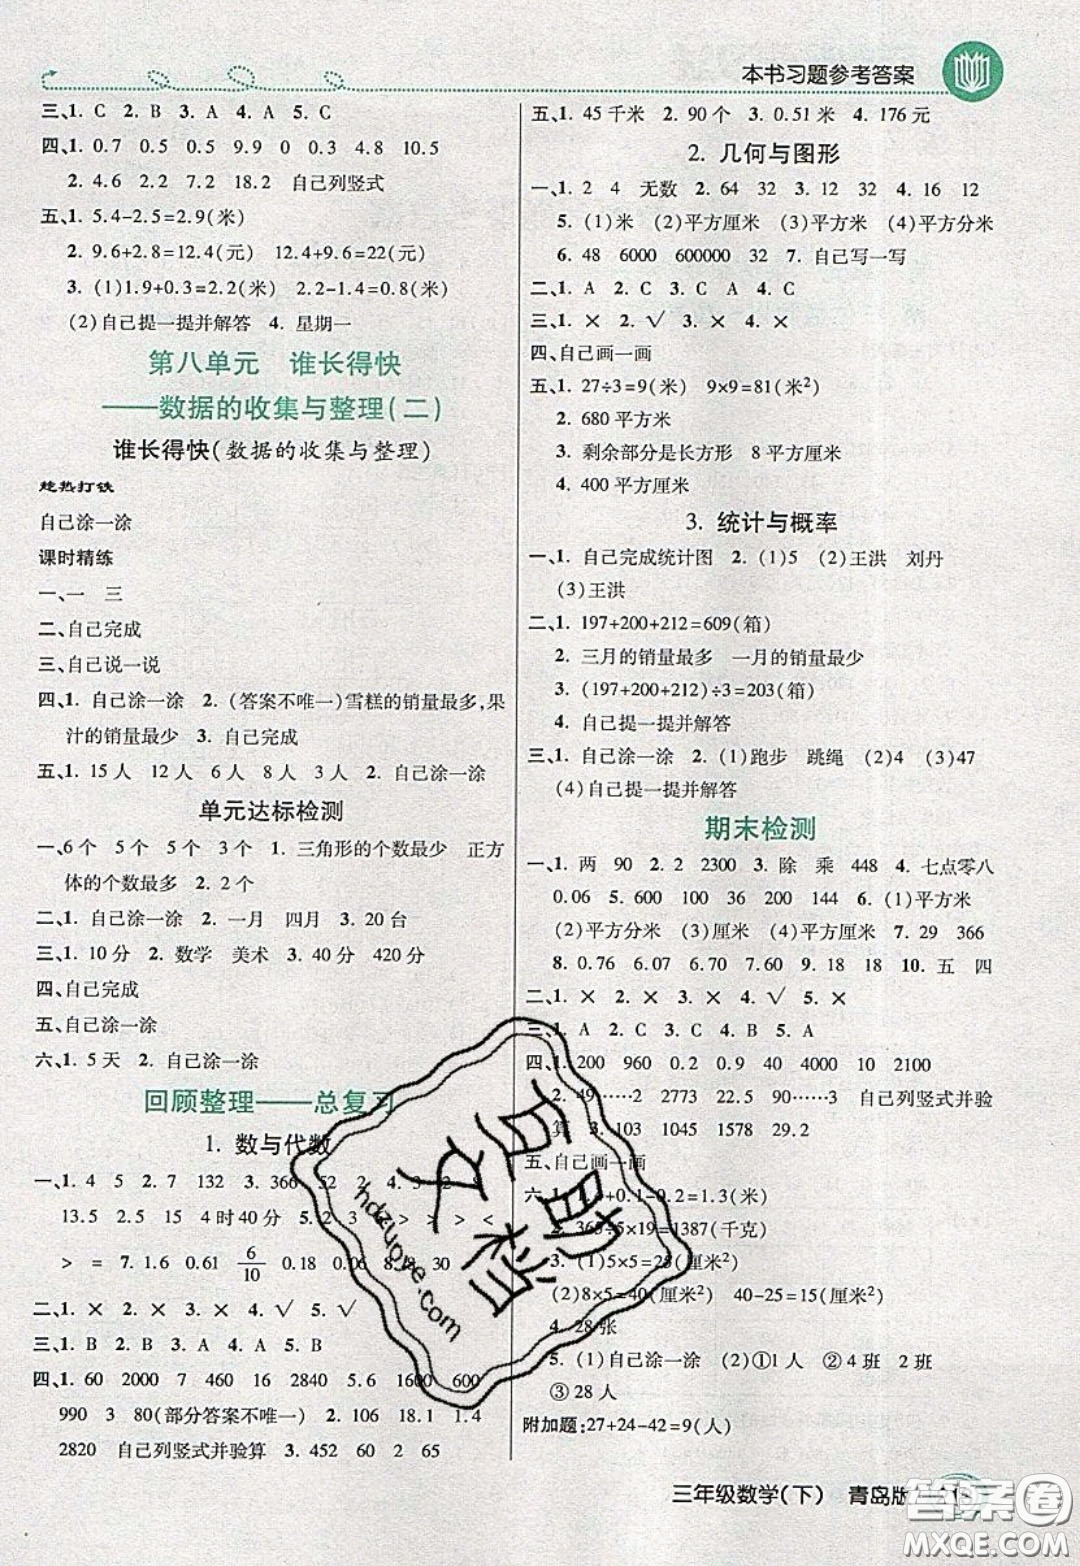 本书习题参考答案
三、1. C 2. B 3. A 4. A 5. C
四、1. 0.7 0.5 0.5 9.9 0 0.3 4.8 10.5
2. 4.6 2.2 7.2 18.2 自己列竖式
五、1. 5.4-2.5=2.9(米)
2. 9.6+2.8=12.4(元) 12.4+9.6=22(元)
3. (1)1.9+0.3=2.2(米) 2.2-1.4=0.8(米)
(2)自己提一提并解答 4. 星期一
第八单元 谁长得快
——数据的收集与整理(二)
谁长得快(数据的收集与整理)
趁热打铁
自己涂一涂
课时精练
一、一 三
二、自己完成
三、自己说一说
四、1. 自己涂一涂 2. (答案不唯一)雪糕的销量最多,果
汁的销量最少 3. 自己完成
五、1. 15人 12人 6人 8人 3人 2. 自己涂一涂
单元达标检测
一、6个 5个 5个 3个 1. 三角形的个数最少 正方
体的个数最多 2. 2个
二、1. 自己涂一涂 2. 一月 四月 3. 20台
三、1. 10分 2. 数学 美术 3. 40分 420分
四、自己完成
五、自己涂一涂
六、1. 5天 2. 自己涂一涂
回顾整理——总复习
1. 数与代数
一、1. 4 5 2. 7 132 3. 366 52 2 4. 3
13.5 2.5 15 4时40分 5. 2 3 > > > <
> = 7. 1.6 0.61 6/10 0.18 0.06 8. 30
二、1. × 2. × 3. × 4. √ 5. √
三、1. B 2. B 3. A 4. A 5. B
四、1. 60 2000 7 460 16 2840 5.6 1600 600
990 3 80(部分答案不唯一) 2. 106 18.1 1.4
2820 自己列竖式并验算 3. 452 60 2 65
五、1. 45千米 2. 90个 3. 0.51米 4. 176元
2. 几何与图形
一、1. 2 4 无数 2. 64 32 3. 12 32 4. 16 12
5. (1)米 (2)平方厘米 (3)平方米 (4)平方分米
6. 48 6000 600000 32 7. 自己写一写
二、1. A 2. C 3. C A 4. C
三、1. × 2. √ 3. × 4. ×
四、自己画一画
五、1. 27÷3=9(米) 9×9=81(米²)
2. 680平方米
3. 剩余部分是长方形 8平方厘米
4. 400平方厘米
3. 统计与概率
一、1. 自己完成统计图 2. (1)5 (2)王洪 刘丹
(3)王洪
二、1. 197+200+212=609(箱)
2. 三月的销量最多 一月的销量最少
3. (197+200+212)÷3=203(箱)
4. 自己提一提并解答
三、1. 自己涂一涂 2. (1)跑步 跳绳 (2)4 (3)47
(4)自己提一提并解答
期末检测
一、1. 两 90 2. 2 2300 3. 除 乘 448 4. 七点零八
0.06 5. 600 100 36 200 144 6. (1)平方米
(2)平方分米 (3)厘米 (4)平方厘米 7. 29 366
8. 0.76 6.07 6.70 7.60 9. 18 18 10. 五 四
二、1. × 2. × 3. × 4. √ 5. ×
三、1. A 2. C 3. C 4. B 5. A
四、1. 200 960 0.2 0.9 40 4000 10 2100
2. 49……2 2773 22.5 90……3 自己列竖式并验
算 3. 103 1045 1578 29.2
五、自己画一画
六、1. +0.1-0.2=1.3(米)
2. 365÷5×19=1387(千克)
3. (1)5×5=25(厘米²)
(2)8×5=40(厘米²) 40-25=15(厘米²)
4. 28张
5. (1)自己涂一涂 (2)①1人 ②4班 2班
③28人
附加题:27+24-42=9(人)
三年级数学(下) 青岛版
hdzuoye.com
答案卷
MXQE.COM